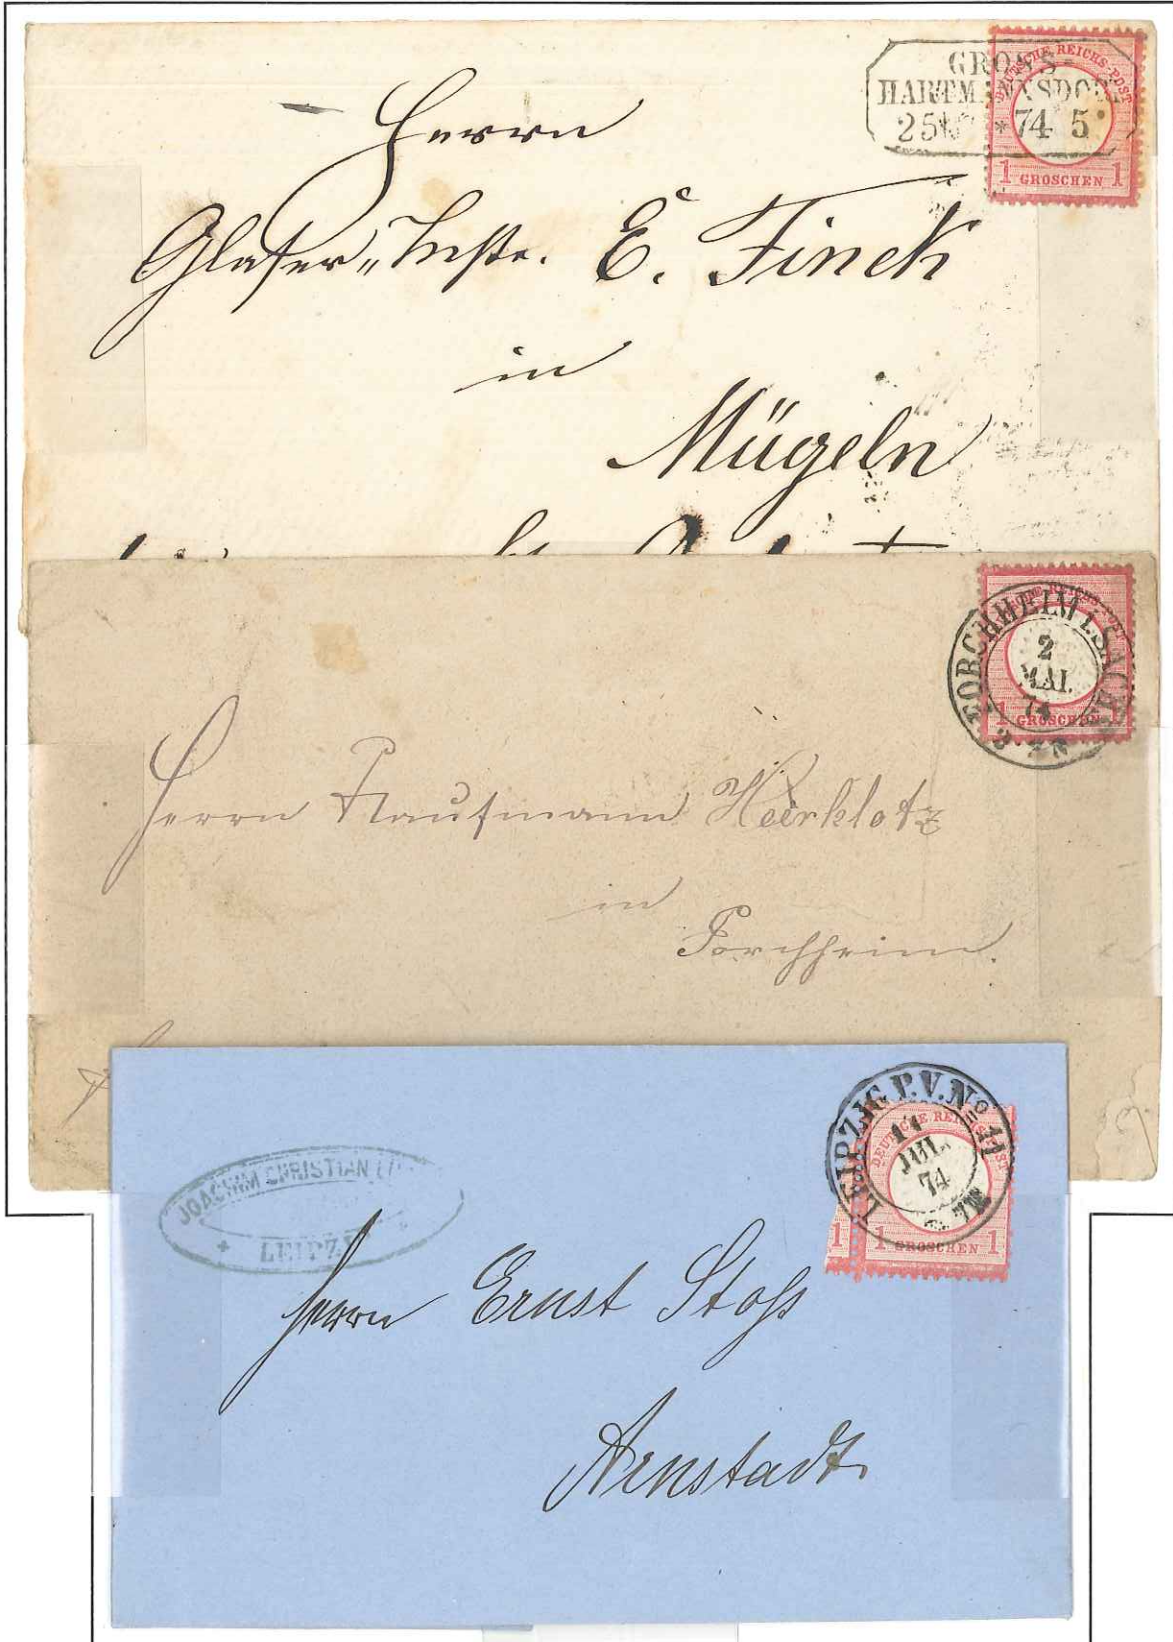 GROSS-
HARTMANNSDORF
25 * 74 5
DEUTSCHE REICHS-POST
1 GROSCHEN 1
Herrn
Glaser E. Finck
in
Mügeln
FORCHHEIM I. SACHS.
2
MAI.
74
REICHS-POST
1 GROSCHEN
Herrn Kaufmann Heerklotz
in
Forchheim.
LEIPZIG P.V. No 11
JUL.
74
DEUTSCHE REICHS-POST
1
1 GROSCHEN 1
JOACHIM CHRISTIAN
LEIPZIG
Herrn Ernst Stoß
Arnstadt